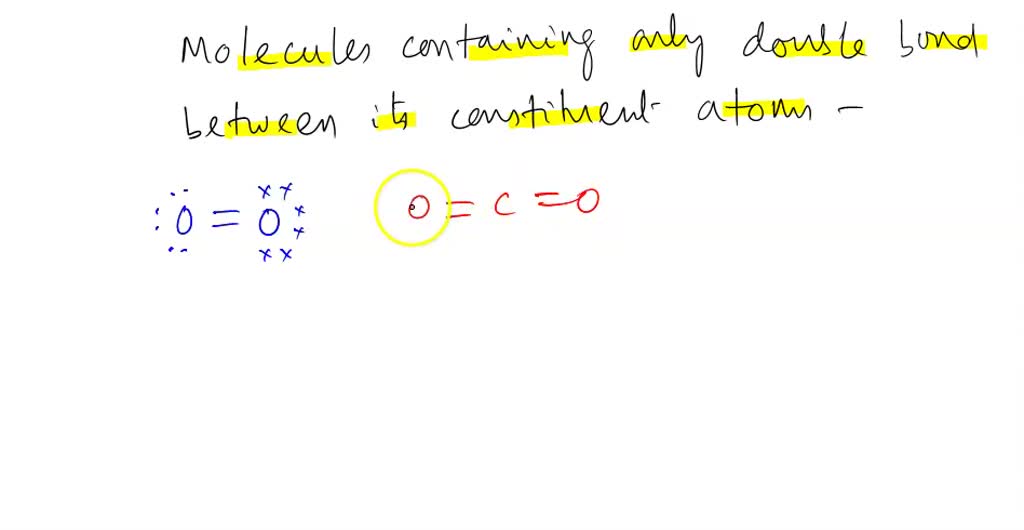 Molecules containing only double bond
between its constituent atoms -
O = O O = C = O